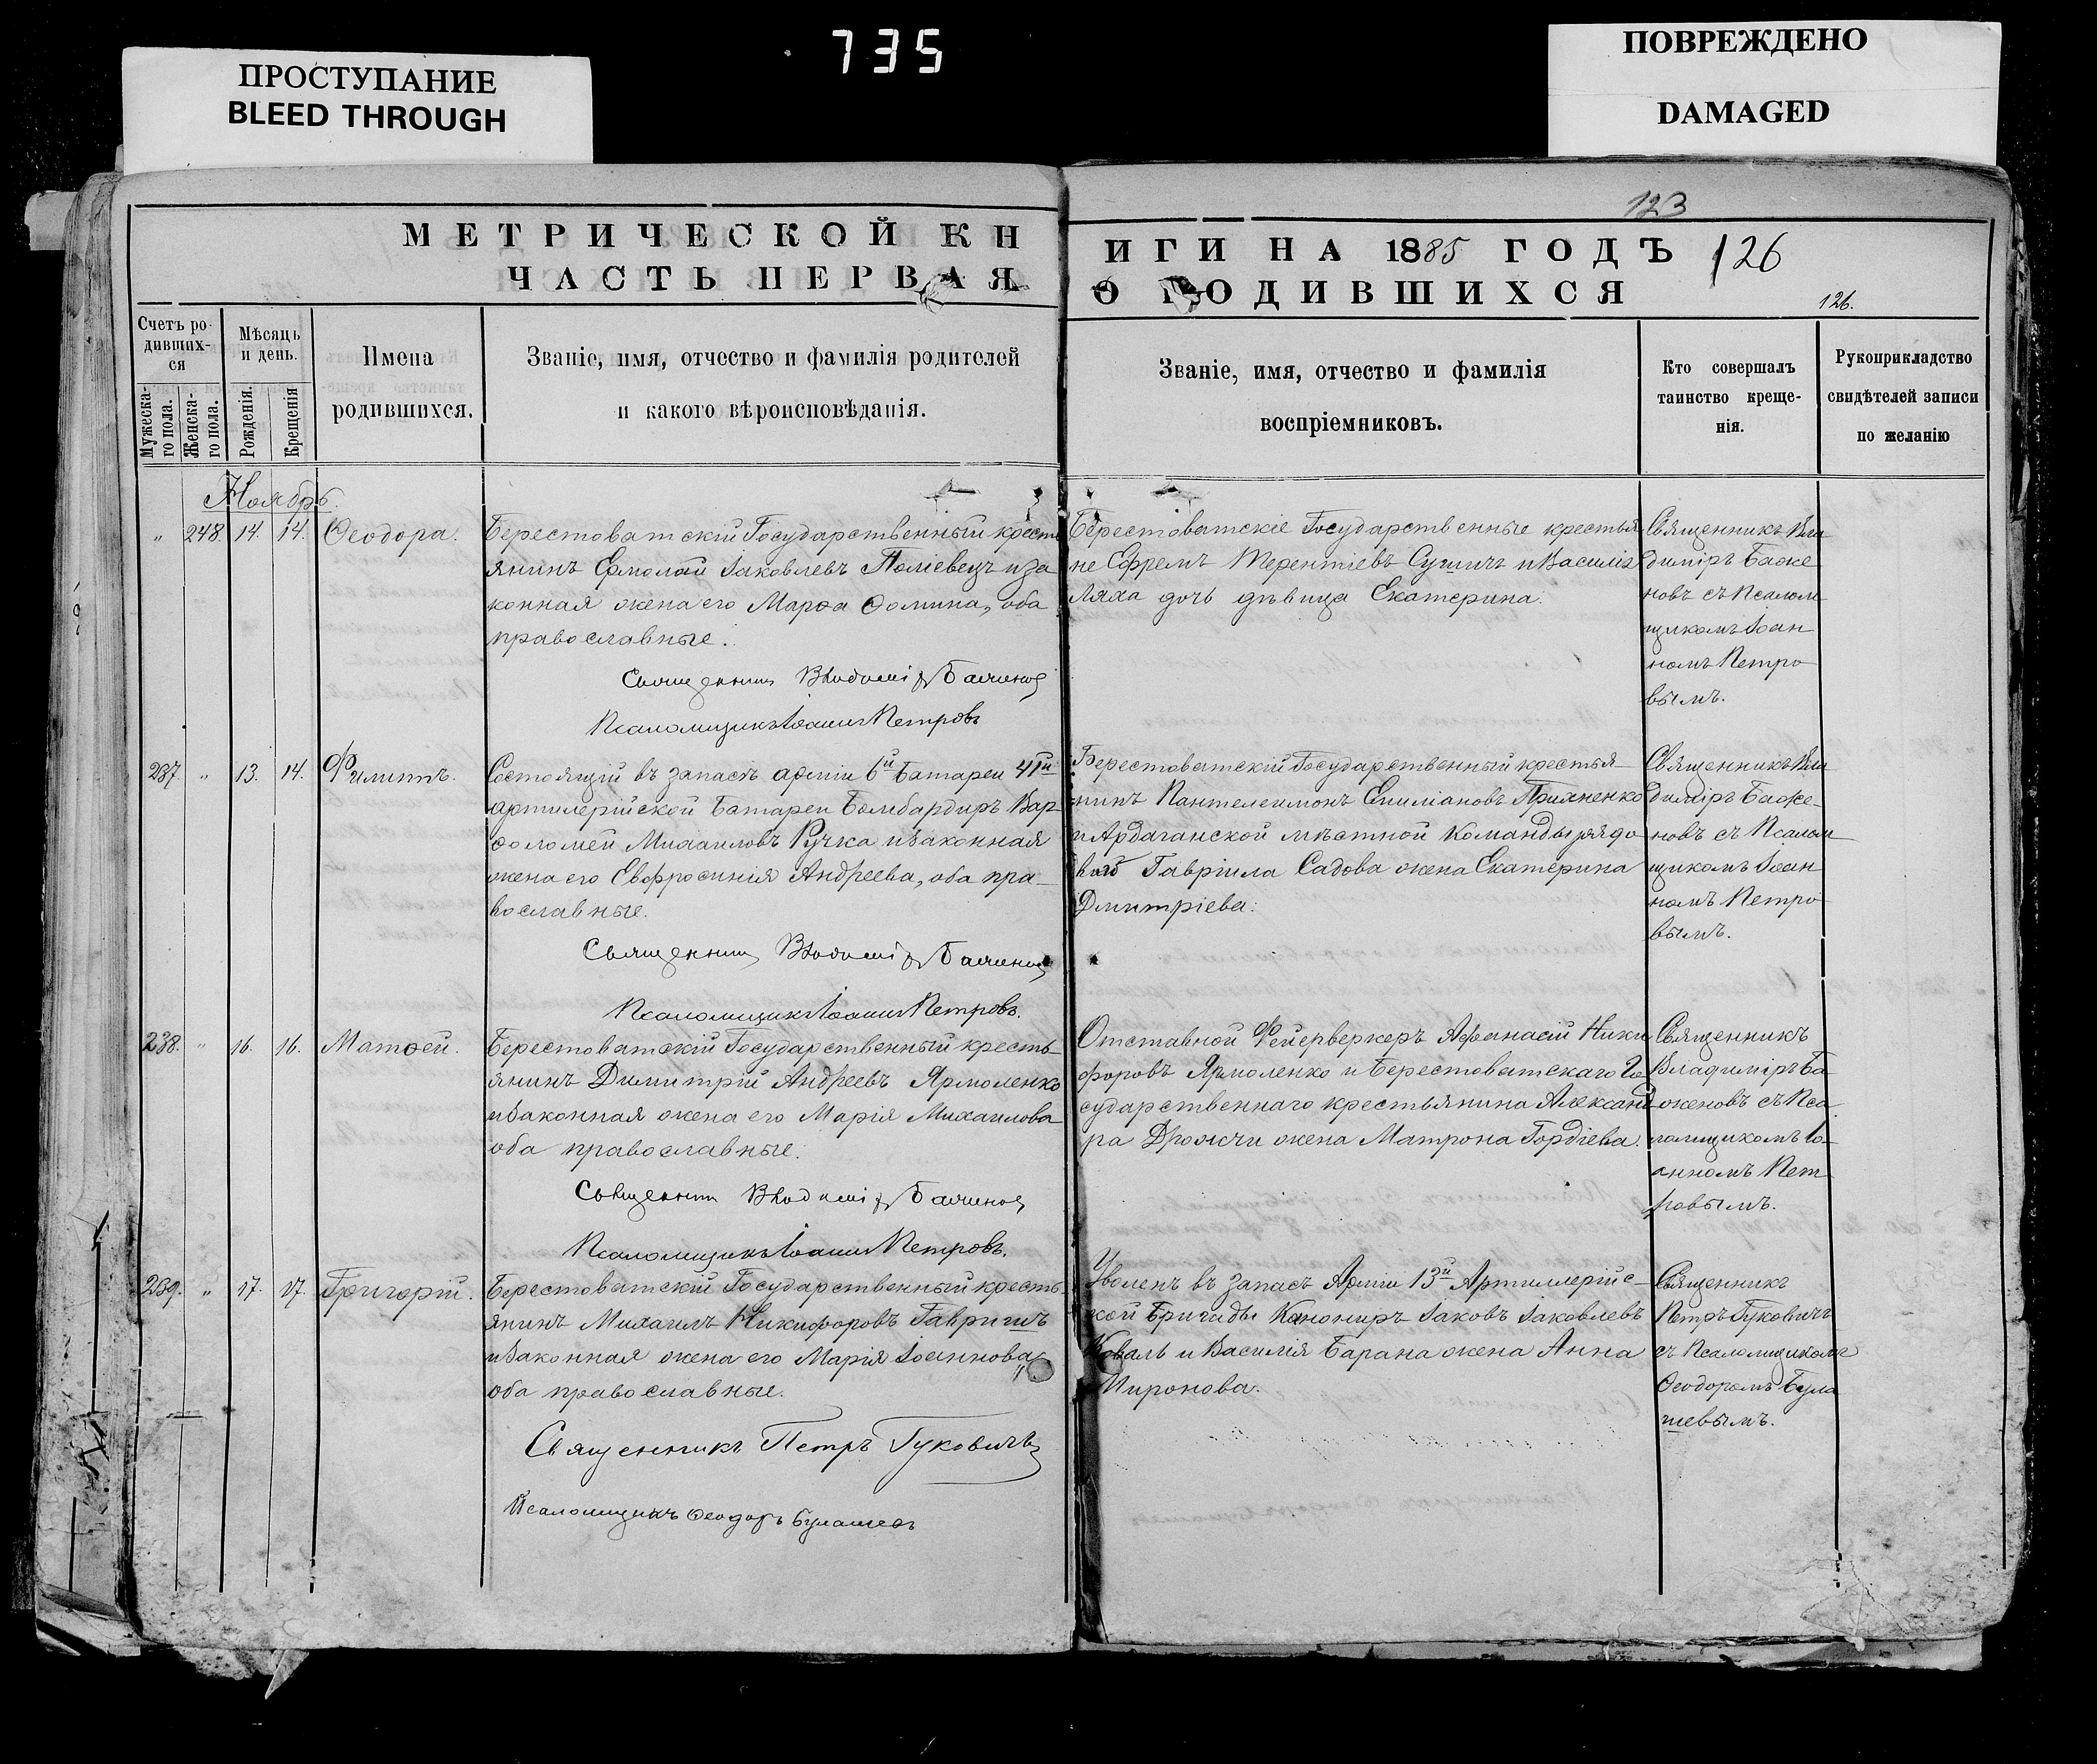 735
ПРОСТУПАНИЕ
BLEED THROUGH
ПОВРЕЖДЕНО
DAMAGED
123
МЕТРИЧЕСКОЙ КН
ЧАСТЬ ПЕРВАЯ
ИГИ НА 1885 ГОДЪ 126
О РОДИВШИХСЯ
126.
Счетъ ро-
дивших-
ся
Мужеска-
го пола.
Женска-
го пола.
Мѣсяцъ
и день.
Рожденія.
Крещенія
Имена
родившихся.
Званіе, имя, отчество и фамилія родителей
и какого вѣроисповѣданія.
Званіе, имя, отчество и фамилія
воспріемниковъ.
Кто совершалъ
таинство креще-
нія.
Рукоприкладство
свидѣтелей записи
по желанію
Ноябрь.
" 248. 14. 14. Ѳеодора.
Берестоватскій Государственный кресть
янинъ Ермолай Іаковлевъ Поліевецъ и за
конная жена его Марѳа Ѳомина, оба
православные.
Священникъ Владиміръ Баженов
Псаломщикъ Іоаннъ Петровъ
Берестоватскіе Государственные крестья
не Ефремъ Терентіевъ Сушичъ и Василія
Ляха дочь дѣвица Екатерина.
Священникъ Вла
диміръ Баже
новъ съ Псалом
щикомъ Іоан
номъ Петро
вымъ.
237. " 13. 14. Филиппъ.
Состоящій въ запасѣ арміи 6й Батареи 41й
артилерійской Батареи Бомбардиръ Вар-
ѳоломей Михаиловъ Ручка и законная
жена его Евфросинія Андреева, оба пра-
вославные.
Священникъ Владиміръ Баженов
Псаломщикъ Іоаннъ Петровъ.
Берестоватскій Государственный крестья-
нинъ Пантелеимонъ Епиміановъ Прихненко
и Ардаганской мѣстной Команды рядо
ваго Гавріила Садова жена Екатерина
Дмитріева.
Священникъ Вла
диміръ Баже-
новъ съ Псалом
щикомъ Іоан
номъ Петро
вымъ.
238. " 16. 16. Матѳей.
Берестоватскій Государственный кресть-
янинъ Димитрій Андреевъ Ярмоленко
и законная жена его Марія Михаилова
оба православные.
Священникъ Владиміръ Баженов
Псаломщикъ Іоаннъ Петровъ.
Отставной Фейерверкеръ Афанасій Ники
форовъ Ярмоленко и Берестоватскаго Го
сударственнаго крестьянина Александ
ра Дрожчи жена Матрона Гордіева.
Священникъ
Владиміръ Ба-
женовъ съ Пса
ломщикомъ Іо-
анномъ Пет
ровымъ.
239. " 17. 17. Григорій.
Берестоватскій Государственный кресть
янинъ Михаилъ Никифоровъ Гавришъ
и законная жена его Марія Іоаннова,
оба православные.
Священникъ Петръ Гуковичъ
Псаломщикъ Ѳеодоръ Булашевъ
Уволенъ въ запасъ Арміи 13й Артиллерійс-
кой Бригады Канониръ Іаковъ Іаковлевъ
Коваль и Василія Барана жена Анна
Миронова.
Священникъ
Петръ Гуковичъ
съ Псаломщикомъ
Ѳеодоромъ Була
шевымъ.